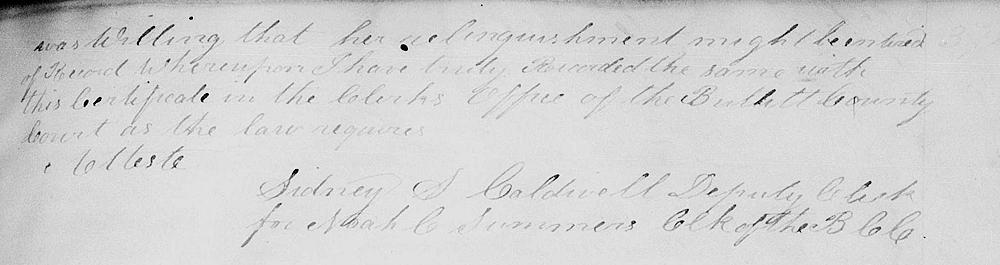 was Willing that her relinquishment might be entered
of Record Whereupon I have truly Recorded the same with
this Certificate in the Clerks Office of the Bullitt County
Court as the law requires
Atteste
Sidney S Caldwell Deputy Clerk
for Noah C Summers Clk of the B C C.